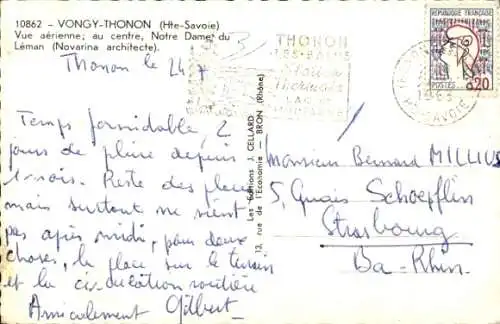 10862 - VONGY-THONON (Hte-Savoie)
Vue aérienne; au centre, Notre Dame du
Léman (Novarina architecte).
Thonon le 24
Temps formidable, 2
jours de pluie depuis
1 mois. Reste des places
mais surtout ne vient
pas après midi, pour deux
choses, la place sur le terrain
et la circulation routière
Amicalement Gilbert
Les Editions J. CELLARD
13, rue de l'Economie - BRON (Rhône)
THONON
LES-BAINS
REPUBLIQUE FRANÇAISE
POSTES
0,20
Monsieur Bernard MILLIUS
5, Quais Schoepflin
Strasbourg
Ba-Rhin